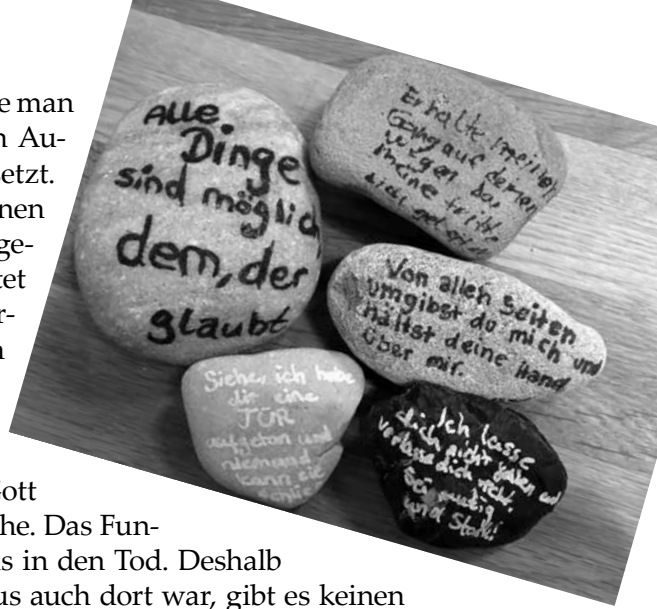 e man
n Au-
etzt.
nen
ge-
tet
r-
n
Gott
he. Das Fun-
s in den Tod. Deshalb
us auch dort war, gibt es keinen
Alle
Dinge
sind möglich
dem, der
glaubt
Erhalte meinen
Gang auf deinen
Wegen das
meine Tritte
nicht
Von allen Seiten
umgibst du mich und
hältst deine Hand
über mir.
Siehe, ich habe
dir eine
TÜR
aufgetan und
niemand
kann sie
Ich lasse
dich nicht
verlasse dich nicht.
Sei mutig
und stark!